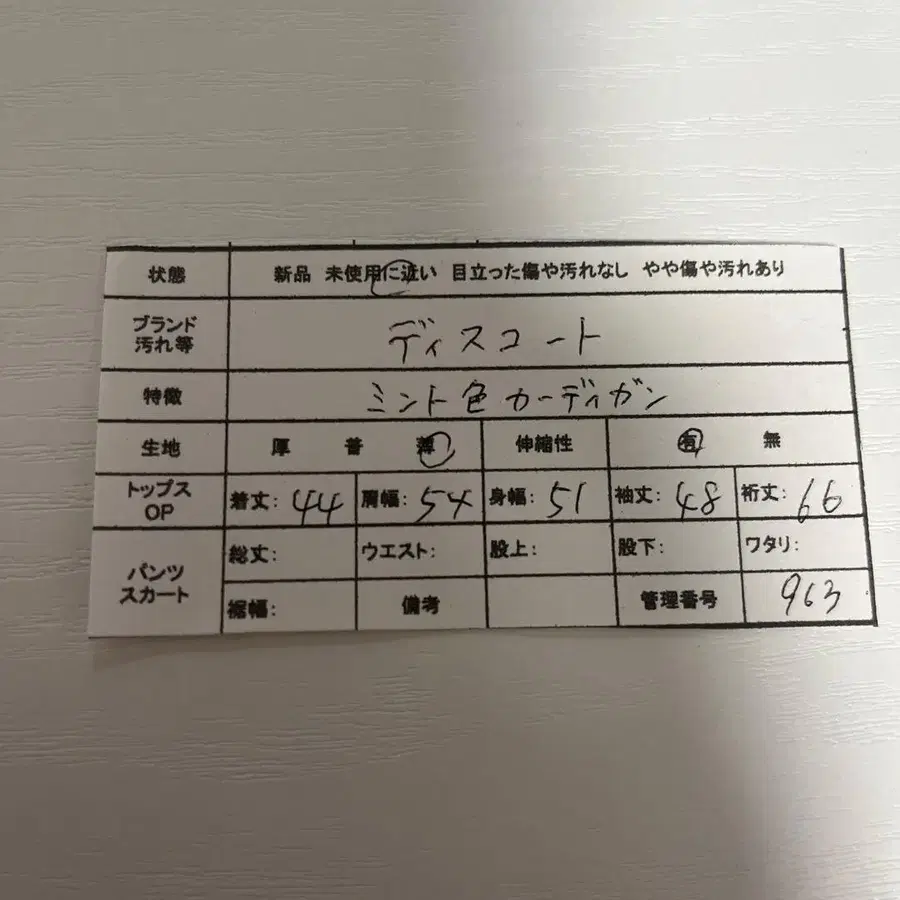 状態 新品 未使用に近い 目立った傷や汚れなし やや傷や汚れあり
ブランド 汚れ等 ディスコート
特徴 ミント色カーディガン
生地 厚 普 薄 伸縮性 有 無
トップス OP 着丈: 44 肩幅: 54 身幅: 51 袖丈: 48 裄丈: 66
パンツ スカート 総丈: ウエスト: 股上: 股下: ワタリ:
裾幅: 備考 管理番号 963